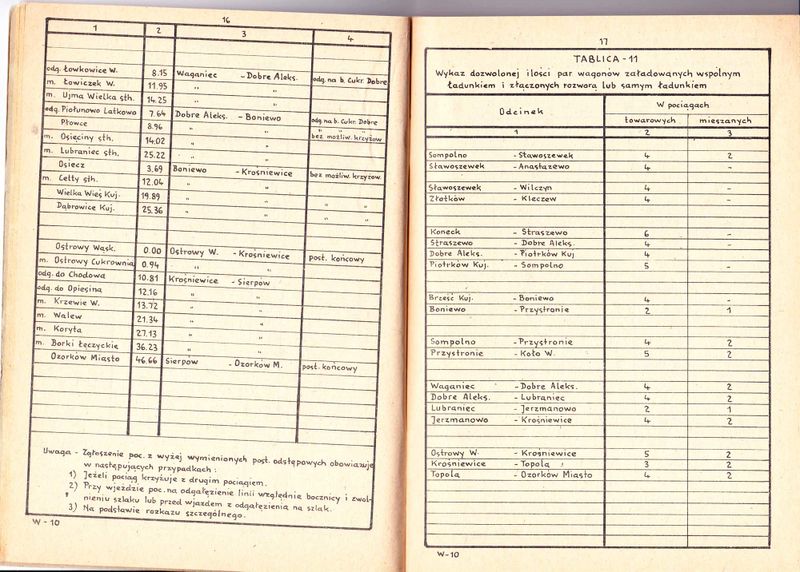 16
1 2 3 4
odg. Łowkowice W. 8.15 Waganiec - Dobre Aleks. odg. na b. Cukr. Dobre
m. Łowiczek W. 11.95 " "
m. Ujma Wielka sth. 14.25 " "
odg. Piołunowo Latkowo 7.64 Dobre Aleks. - Boniewo odg. na b. Cukr. Dobre
Płowce 8.96 " " " " "
m. Osięciny sth. 14.02 " " bez możliw. krzyżow
m. Lubraniec sth. 25.22 " "
Osiecz 3.69 Boniewo - Krośniewice bez możliw. krzyżow.
m. Cetty sth. 12.04 " "
Wielka Wieś Kuj. 19.89 " " " "
Dąbrowice Kuj. 25.36 " " " "
Ostrowy Wąsk. 0.00 Ostrowy W. - Krośniewice post. końcowy
m. Ostrowy Cukrownia 0.94 " "
odg. do Chodowa 10.81 Krośniewice - Sierpów
odg. do Opiesina 12.16 " "
m. Krzewie W. 13.72 " "
m. Walew 21.34 " "
m. Koryta 27.13 " "
m. Borki Łęczyckie 36.23 " "
Ozorków Miasto 46.66 Sierpów - Ozorków M. post. końcowy
Uwaga - Zgłoszenie poc. z wyżej wymienionych post. odstępowych obowiązuje
w następujących przypadkach:
1) Jeżeli pociąg krzyżuje z drugim pociągiem.
2) Przy wjeździe poc. na odgałęzienie linii względnie bocznicy i zwol-
nieniu szlaku lub przed wjazdem z odgałęzienia na szlak.
3) Na podstawie rozkazu szczególnego.
W - 10
17
TABLICA - 11
Wykaz dozwolonej ilości par wagonów załadowanych wspólnym
ładunkiem i złączonych rozworą lub samym ładunkiem
Odcinek W pociągach
towarowych mieszanych
1 2 3
Sompolno - Sławoszewek 4 2
Sławoszewek - Anastazewo 4 -
Sławoszewek - Wilczyn 4 -
Złotków - Kleczew 4 -
Koneck - Straszewo 6 -
Straszewo - Dobre Aleks. 4 -
Dobre Aleks. - Piotrków Kuj 4
Piotrków Kuj. - Sompolno 5 -
Brześć Kuj. - Boniewo 4 -
Boniewo - Przystronie 2 1
Sompolno - Przystronie 4 2
Przystronie - Koło W. 5 2
Waganiec - Dobre Aleks. 4 2
Dobre Aleks. - Lubraniec 4 2
Lubraniec - Jerzmanowo 2 1
Jerzmanowo - Krośniewice 4 2
Ostrowy W. - Krośniewice 5 2
Krośniewice - Topola 3 2
Topola - Ozorków Miasto 4 2
W-10